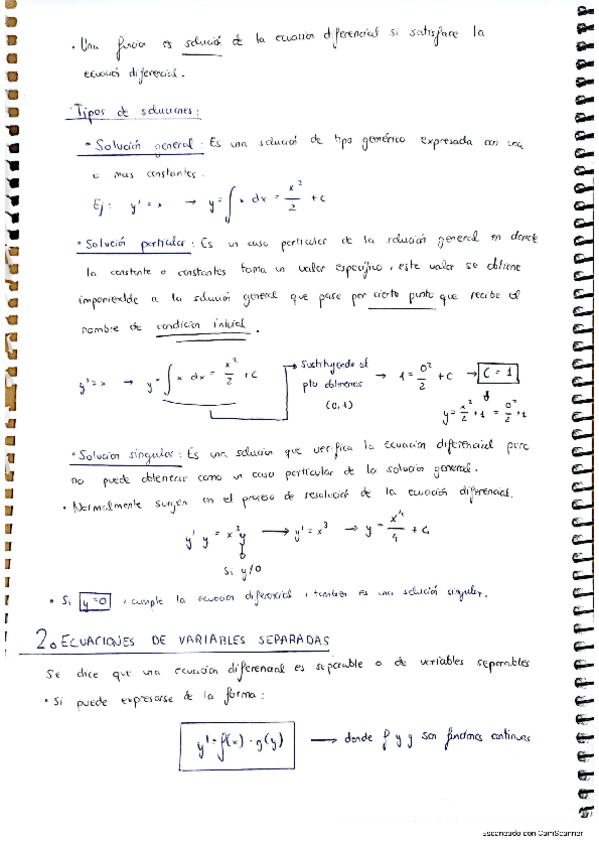 • Una funcion es solució de la ecuacion diferencial si satisface la
ecuació diferencial.
Tipos de soluciones:
• Solución general: Es una solució de tipo genérico expresada con una
o mas constantes.
Ej: y' = x → y = ∫ x dx = x²/2 + c
• Solución particular: Es un caso particular de la solució general en donde
la constante o constantes toma un valor específico, este valor se obtiene
imponiendole a la solució general que pase por cierto punto que recibe el
nombre de condicion inicial.
y' = x → y = ∫ x dx = x²/2 + c → Sustituyendo el pto obtenemos (0,1) → 1 = 0²/2 + c → C = 1
y = x²/2 + 1 = 0²/2 + 1
• Solucion singular: Es una solucion que verifica la ecuacion diferencial pero
no puede obtenerse como un caso particular de la solucion general.
• Normalmente surgen en el proceso de resolució de la ecuació diferencial.
y' y = x³ y → y' = x³ → y = x⁴/4 + C
Si y≠0
• Si y=0, cumple la ecuacion diferencial, tambien es una solució singular.
2. ECUACIONES DE VARIABLES SEPARADAS
Se dice que una ecuacion diferencial es separable o de variables separables
• Si puede expresarse de la forma:
y' = f(x) · g(y) → donde f y g son funciones continuas
Escaneado con CamScanner